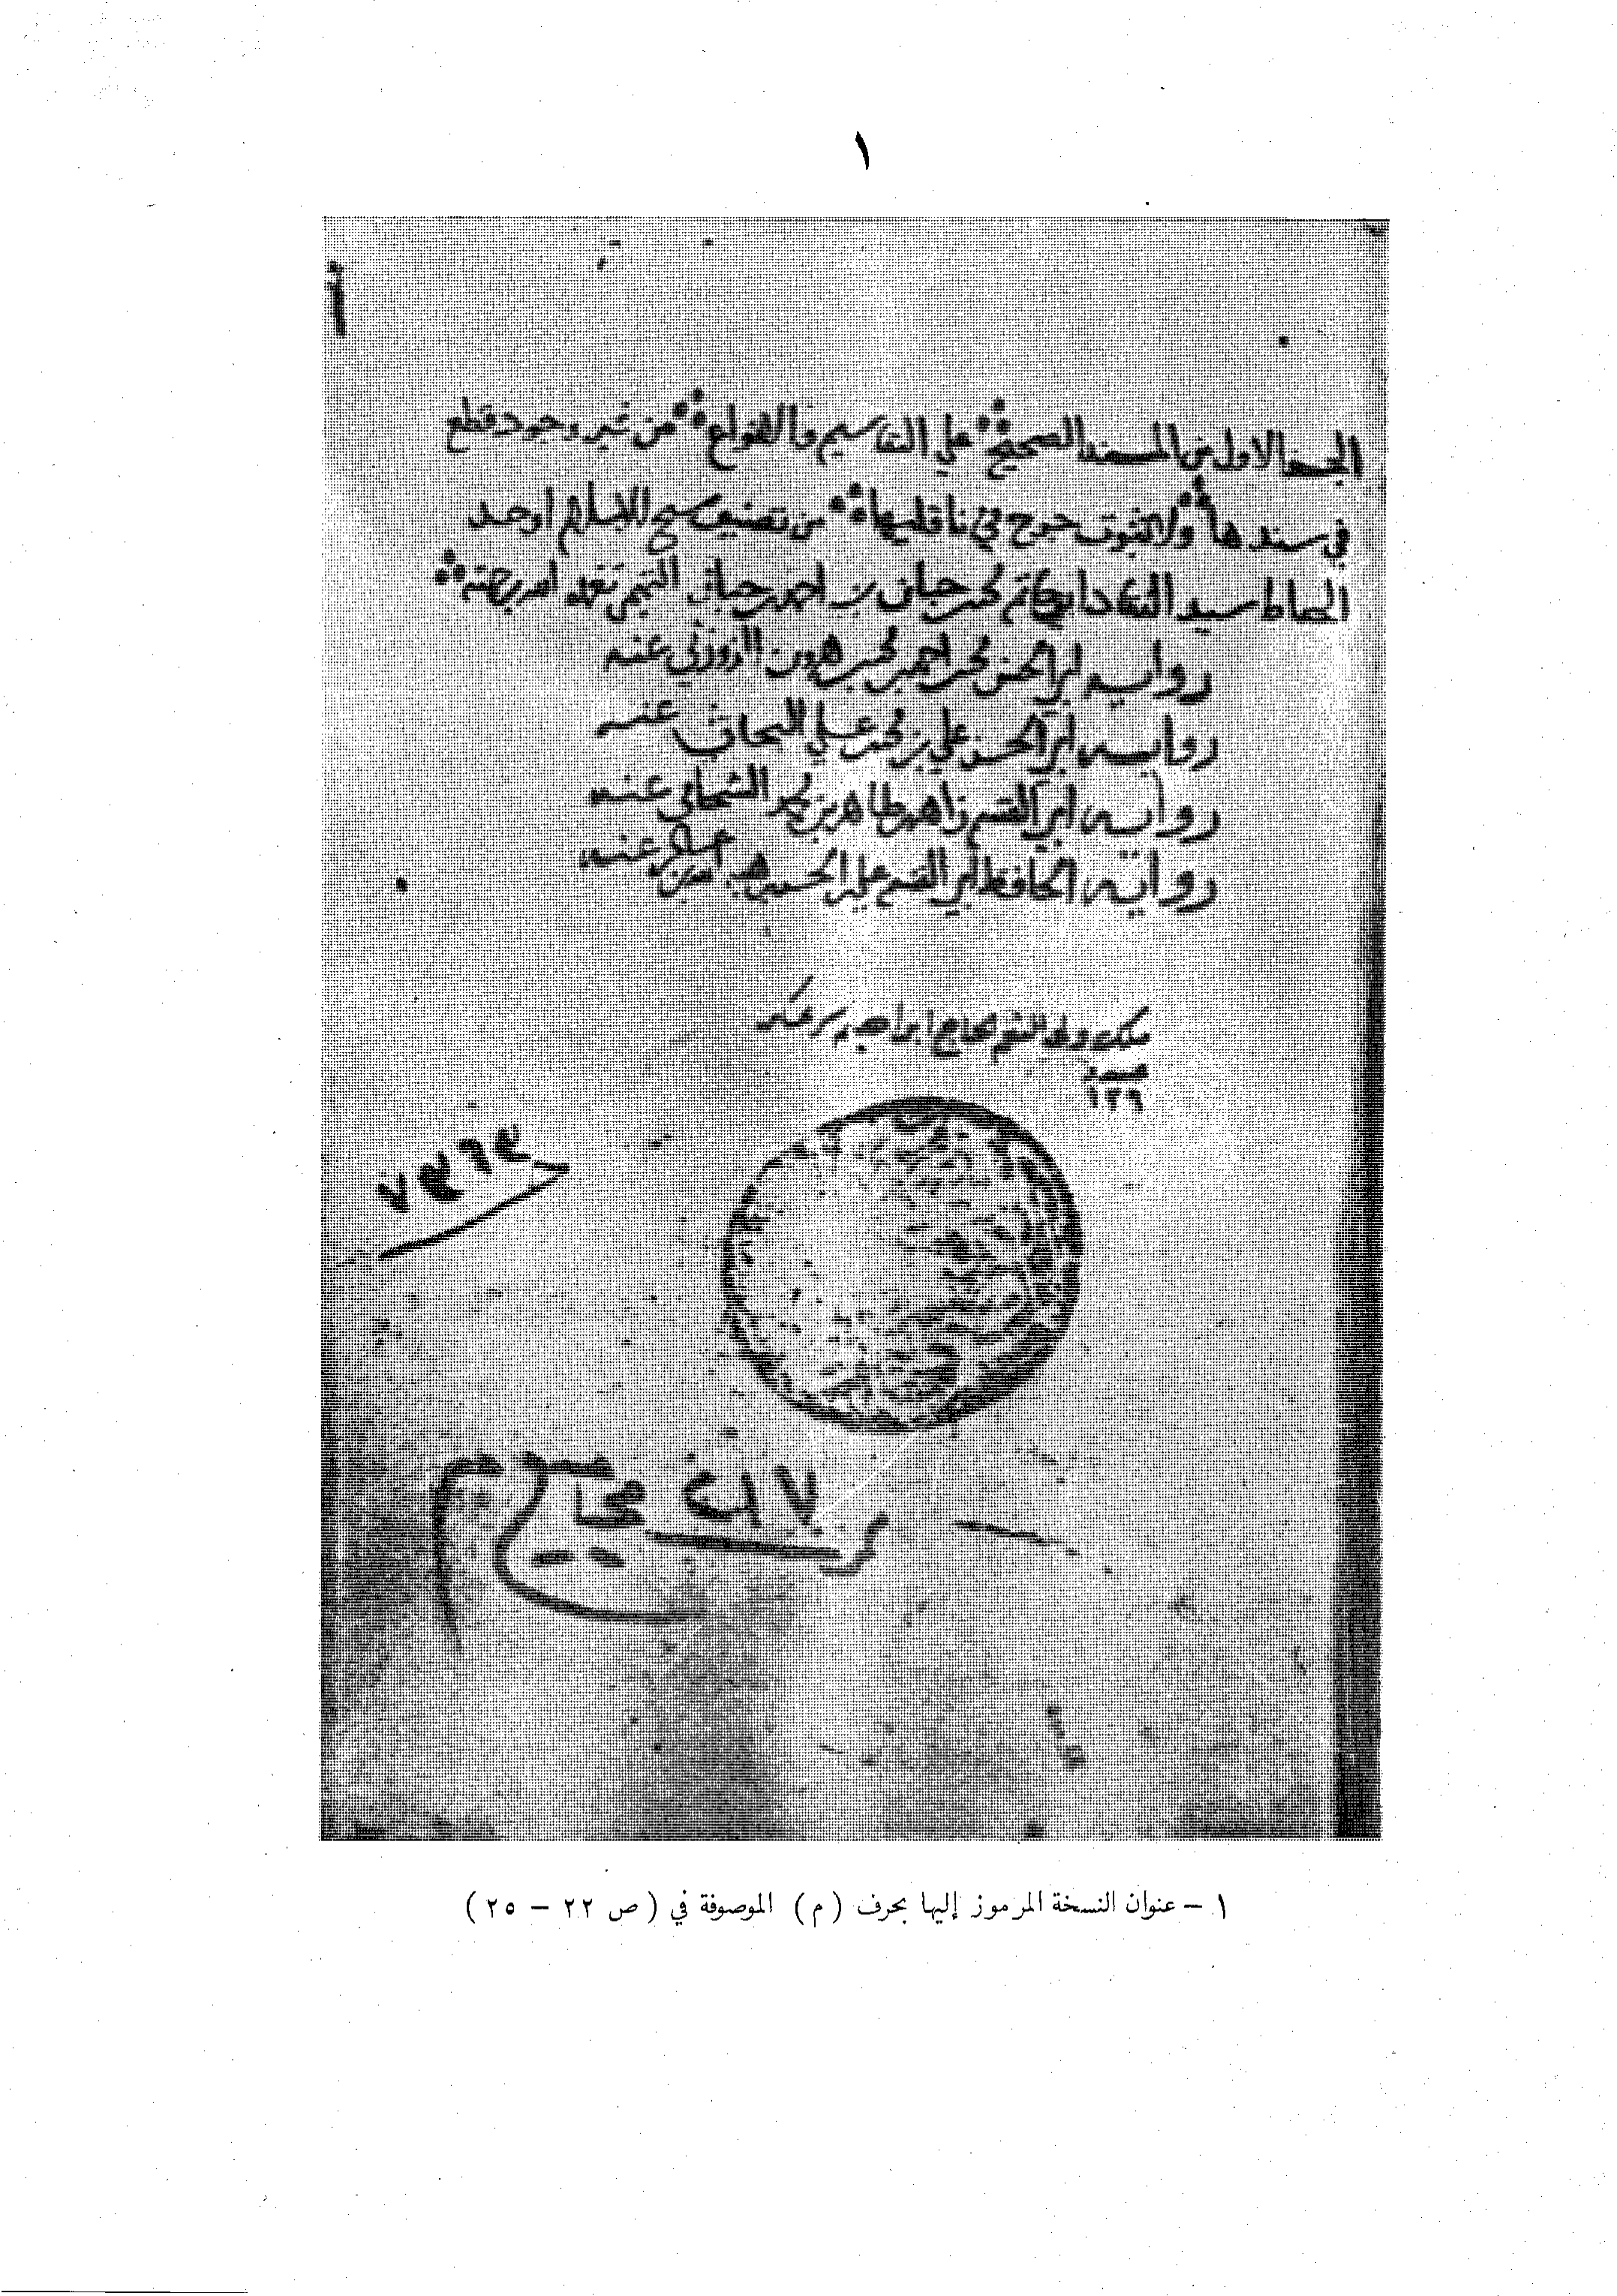 ١
الجزء الاول من المسند الصحيح على التقاسيم والانواع من غير وجود قطع
في سندها ولا ثبوت جرح في ناقليها من تصنيف شيخ الاسلام اوحد
الحفاظ سيد النقاد ابي حاتم محمد بن حبان بن احمد بن حبان التميمي تغمده الله برحمته
رواية ابي الحسن محمد بن احمد بن محمد بن هرون الزوزني عنه
رواية ابي الحسن علي بن محمد بن علي البحاثي عنه
رواية ابي القسم زاهر بن طاهر بن محمد الشحامي عنه
رواية الحافظ ابي القسم علي بن الحسن بن هبة الله بن عساكر عنه
الحاج ابراهيم سرعسكر
١ – عنوان النسخة المرموز إليها بحرف ( م ) الموصوفة في ( ص ٢٢ – ٢٥ )